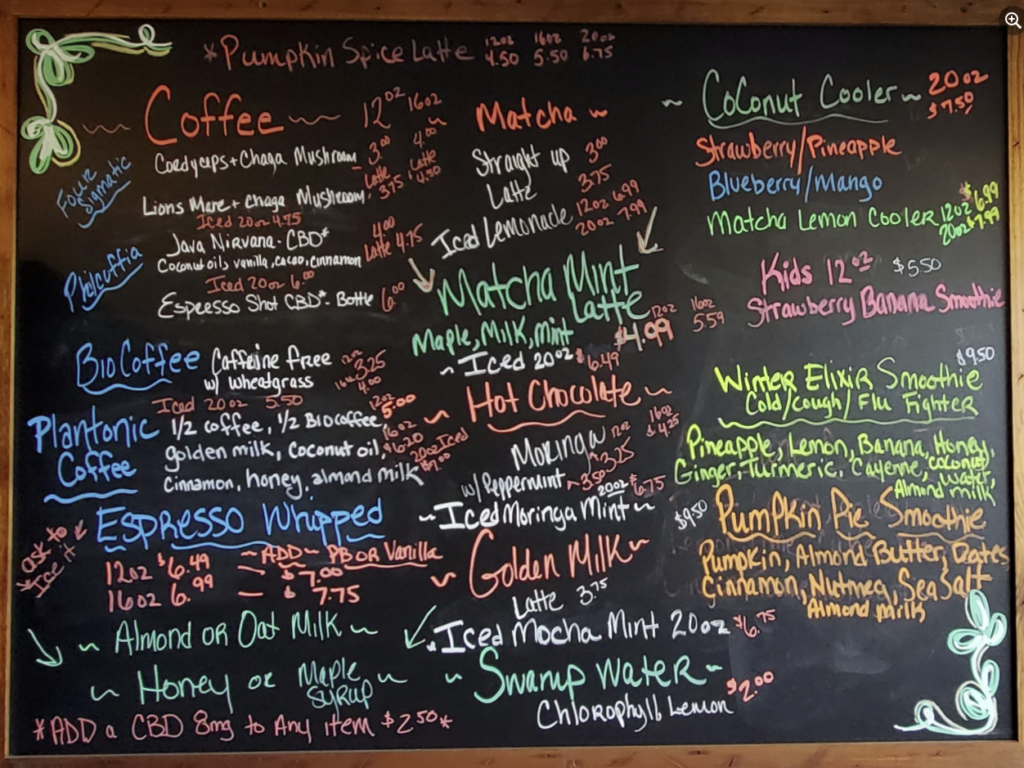 *Pumpkin Spice Latte 12oz 4.50 16oz 5.50 20oz 6.75
~ Coffee ~ 12oz 16oz
Four Sigmatic
Cordyceps + Chaga Mushroom 3.00 4.00
Latte 3.75 Latte 4.50
Lions Mane + Chaga Mushroom
Iced 20oz 4.75
Java Nirvana - CBD* 4.00
Coconut oil, vanilla, cacao, cinnamon Latte 4.75
Iced 20oz 6.00
Espresso Shot CBD* - Bottle 6.00
BioCoffee Caffeine Free 12oz 3.25
w/ wheatgrass 16oz 4.00
Iced 20oz 5.50
Plantonic Coffee
1/2 coffee, 1/2 Biocoffee 12oz 5.00
golden milk, coconut oil, 16oz $6.20
cinnamon, honey, almond milk 20oz Iced $7.00
Espresso Whipped
*ask to Ice it
~ ADD ~ PB or Vanilla
12oz $6.49 — $7.00
16oz 6.99 — $7.75
~ Almond or Oat Milk ~
~ Honey or Maple Syrup ~
*ADD a CBD 8mg to Any item $2.50*
~ Matcha ~
Straight up 3.00
Latte 3.75
Iced Lemonade 12oz 6.99
20oz 7.99
Matcha Mint Latte
Maple, Milk, mint 12oz $4.99 16oz 5.59
~ Iced 20oz $6.49
~ Hot Chocolate ~
Moringa 12oz 3.25 16oz $4.25
w/ Peppermint ~ 3.50
~ Iced Moringa Mint ~ 20oz $6.75
~ Golden Milk ~
Latte 3.75
Iced Mocha Mint 20oz $6.75
~ Swamp Water ~ $2.00
Chlorophyll, Lemon
~ Coconut Cooler ~ 20oz $7.50
Strawberry/Pineapple
Blueberry/Mango
Matcha Lemon Cooler 12oz $6.99
20oz $7.99
Kids 12oz $5.50
Strawberry Banana Smoothie
$9.50
Winter Elixir Smoothie
Cold/Cough/Flu Fighter
Pineapple, Lemon, Banana, Honey,
Ginger, Turmeric, Cayenne, coconut water,
Almond milk
$9.50 Pumpkin Pie Smoothie
Pumpkin, Almond Butter, Dates
Cinnamon, Nutmeg, Sea Salt
Almond milk